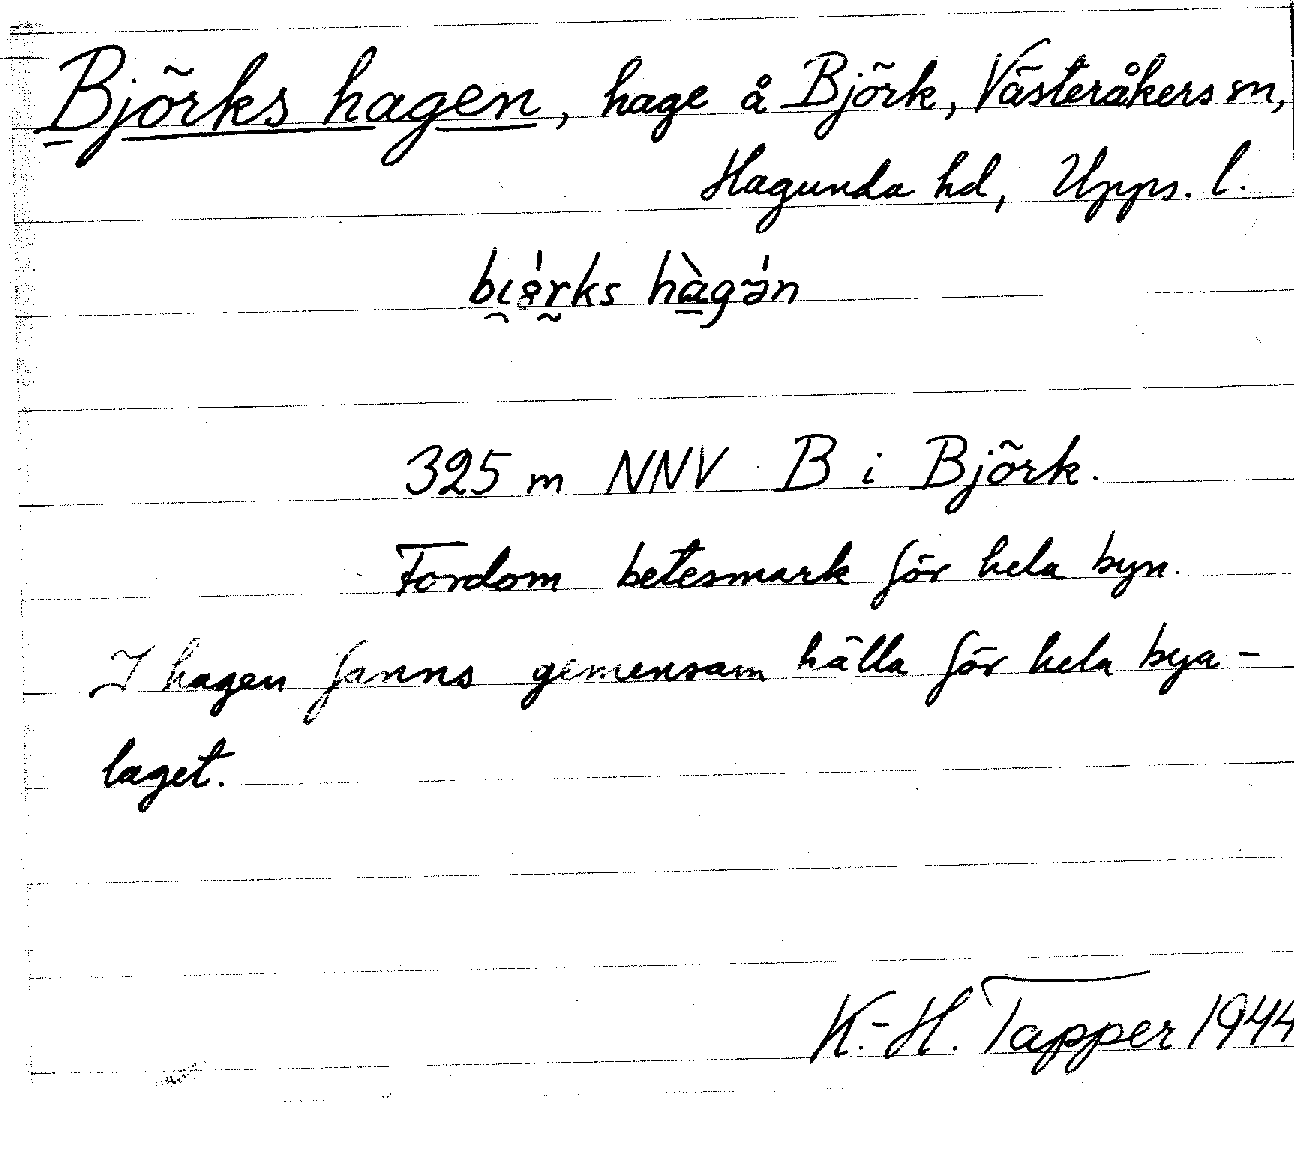 Björks hagen, hage å Björk, Västeråkers sn,
Hagunda hd, Upps. l.
hàgə́n
325 m NNV B i Björk.
Fordom betesmark för hela byn.
I hagen fanns gemensam källa för hela bya-
laget.
K.-H. Tapper 1944